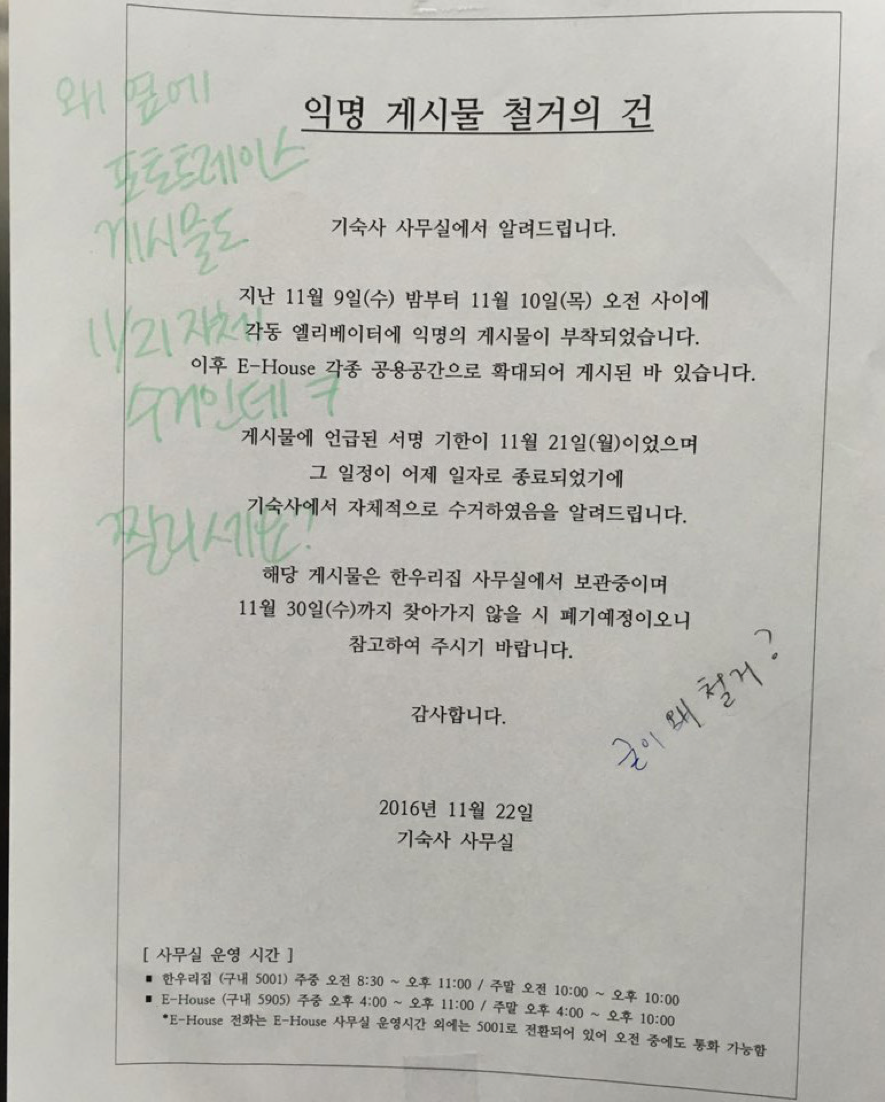 익명 게시물 철거의 건
기숙사 사무실에서 알려드립니다.
지난 11월 9일(수) 밤부터 11월 10일(목) 오전 사이에
각동 엘리베이터에 익명의 게시물이 부착되었습니다.
이후 E-House 각종 공용공간으로 확대되어 게시된 바 있습니다.
게시물에 언급된 서명 기한이 11월 21일(월)이었으며
그 일정이 어제 일자로 종료되었기에
기숙사에서 자체적으로 수거하였음을 알려드립니다.
해당 게시물은 한우리집 사무실에서 보관중이며
11월 30일(수)까지 찾아가지 않을 시 폐기예정이오니
참고하여 주시기 바랍니다.
감사합니다.
2016년 11월 22일
기숙사 사무실
[ 사무실 운영 시간 ]
■ 한우리집 (구내 5001) 주중 오전 8:30 ~ 오후 11:00 / 주말 오전 10:00 ~ 오후 10:00
■ E-House (구내 5905) 주중 오후 4:00 ~ 오후 11:00 / 주말 오후 4:00 ~ 오후 10:00
*E-House 전화는 E-House 사무실 운영시간 외에는 5001로 전환되어 있어 오전 중에도 통화 가능함
왜 옆에
포토트레이스
게시물도
11/21 자체
수거인데 ㅋ
찔리세요?
굳이 왜 철거?